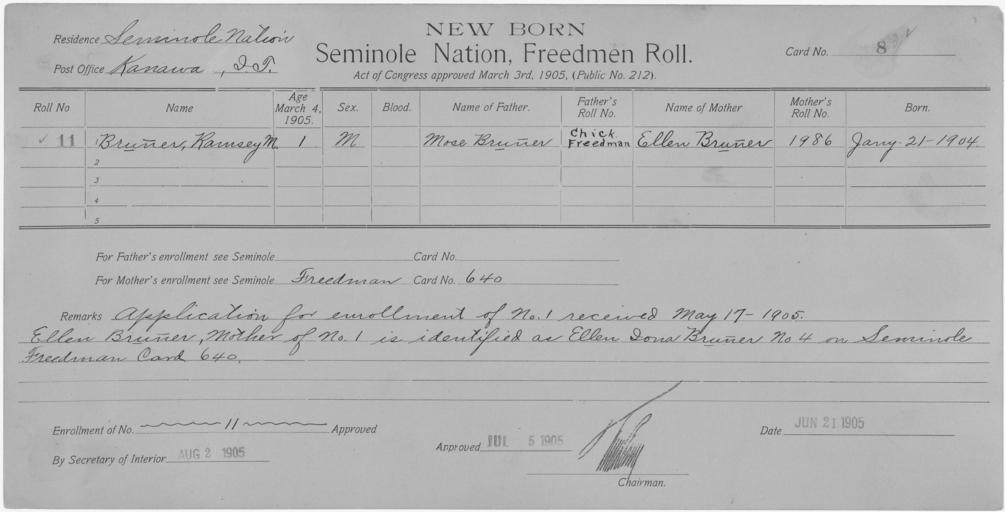 NEW BORN
Seminole Nation, Freedmen Roll.
Act of Congress approved March 3rd, 1905, (Public No. 212).
Residence Seminole Nation
Post Office Kanawa, I.T.
Card No. 8
Roll No Name Age March 4, 1905. Sex. Blood. Name of Father. Father's Roll No. Name of Mother Mother's Roll No. Born.
✓ 11 1 Bruner, Ramsey M. 1 M Mose Bruner Chick. Freedman Ellen Bruner 1986 Jany. 21-1904
2
3
4
5
For Father's enrollment see Seminole Card No.
For Mother's enrollment see Seminole Freedman Card No. 640
Remarks Application for enrollment of No. 1 received May 17-1905.
Ellen Bruner, Mother of No. 1 is identified as Ellen Dona Bruner No 4 on Seminole
Freedman Card 640.
Enrollment of No. 11 Approved
By Secretary of Interior AUG 2 1905
Approved JUL 5 1905
Chairman.
Date JUN 21 1905